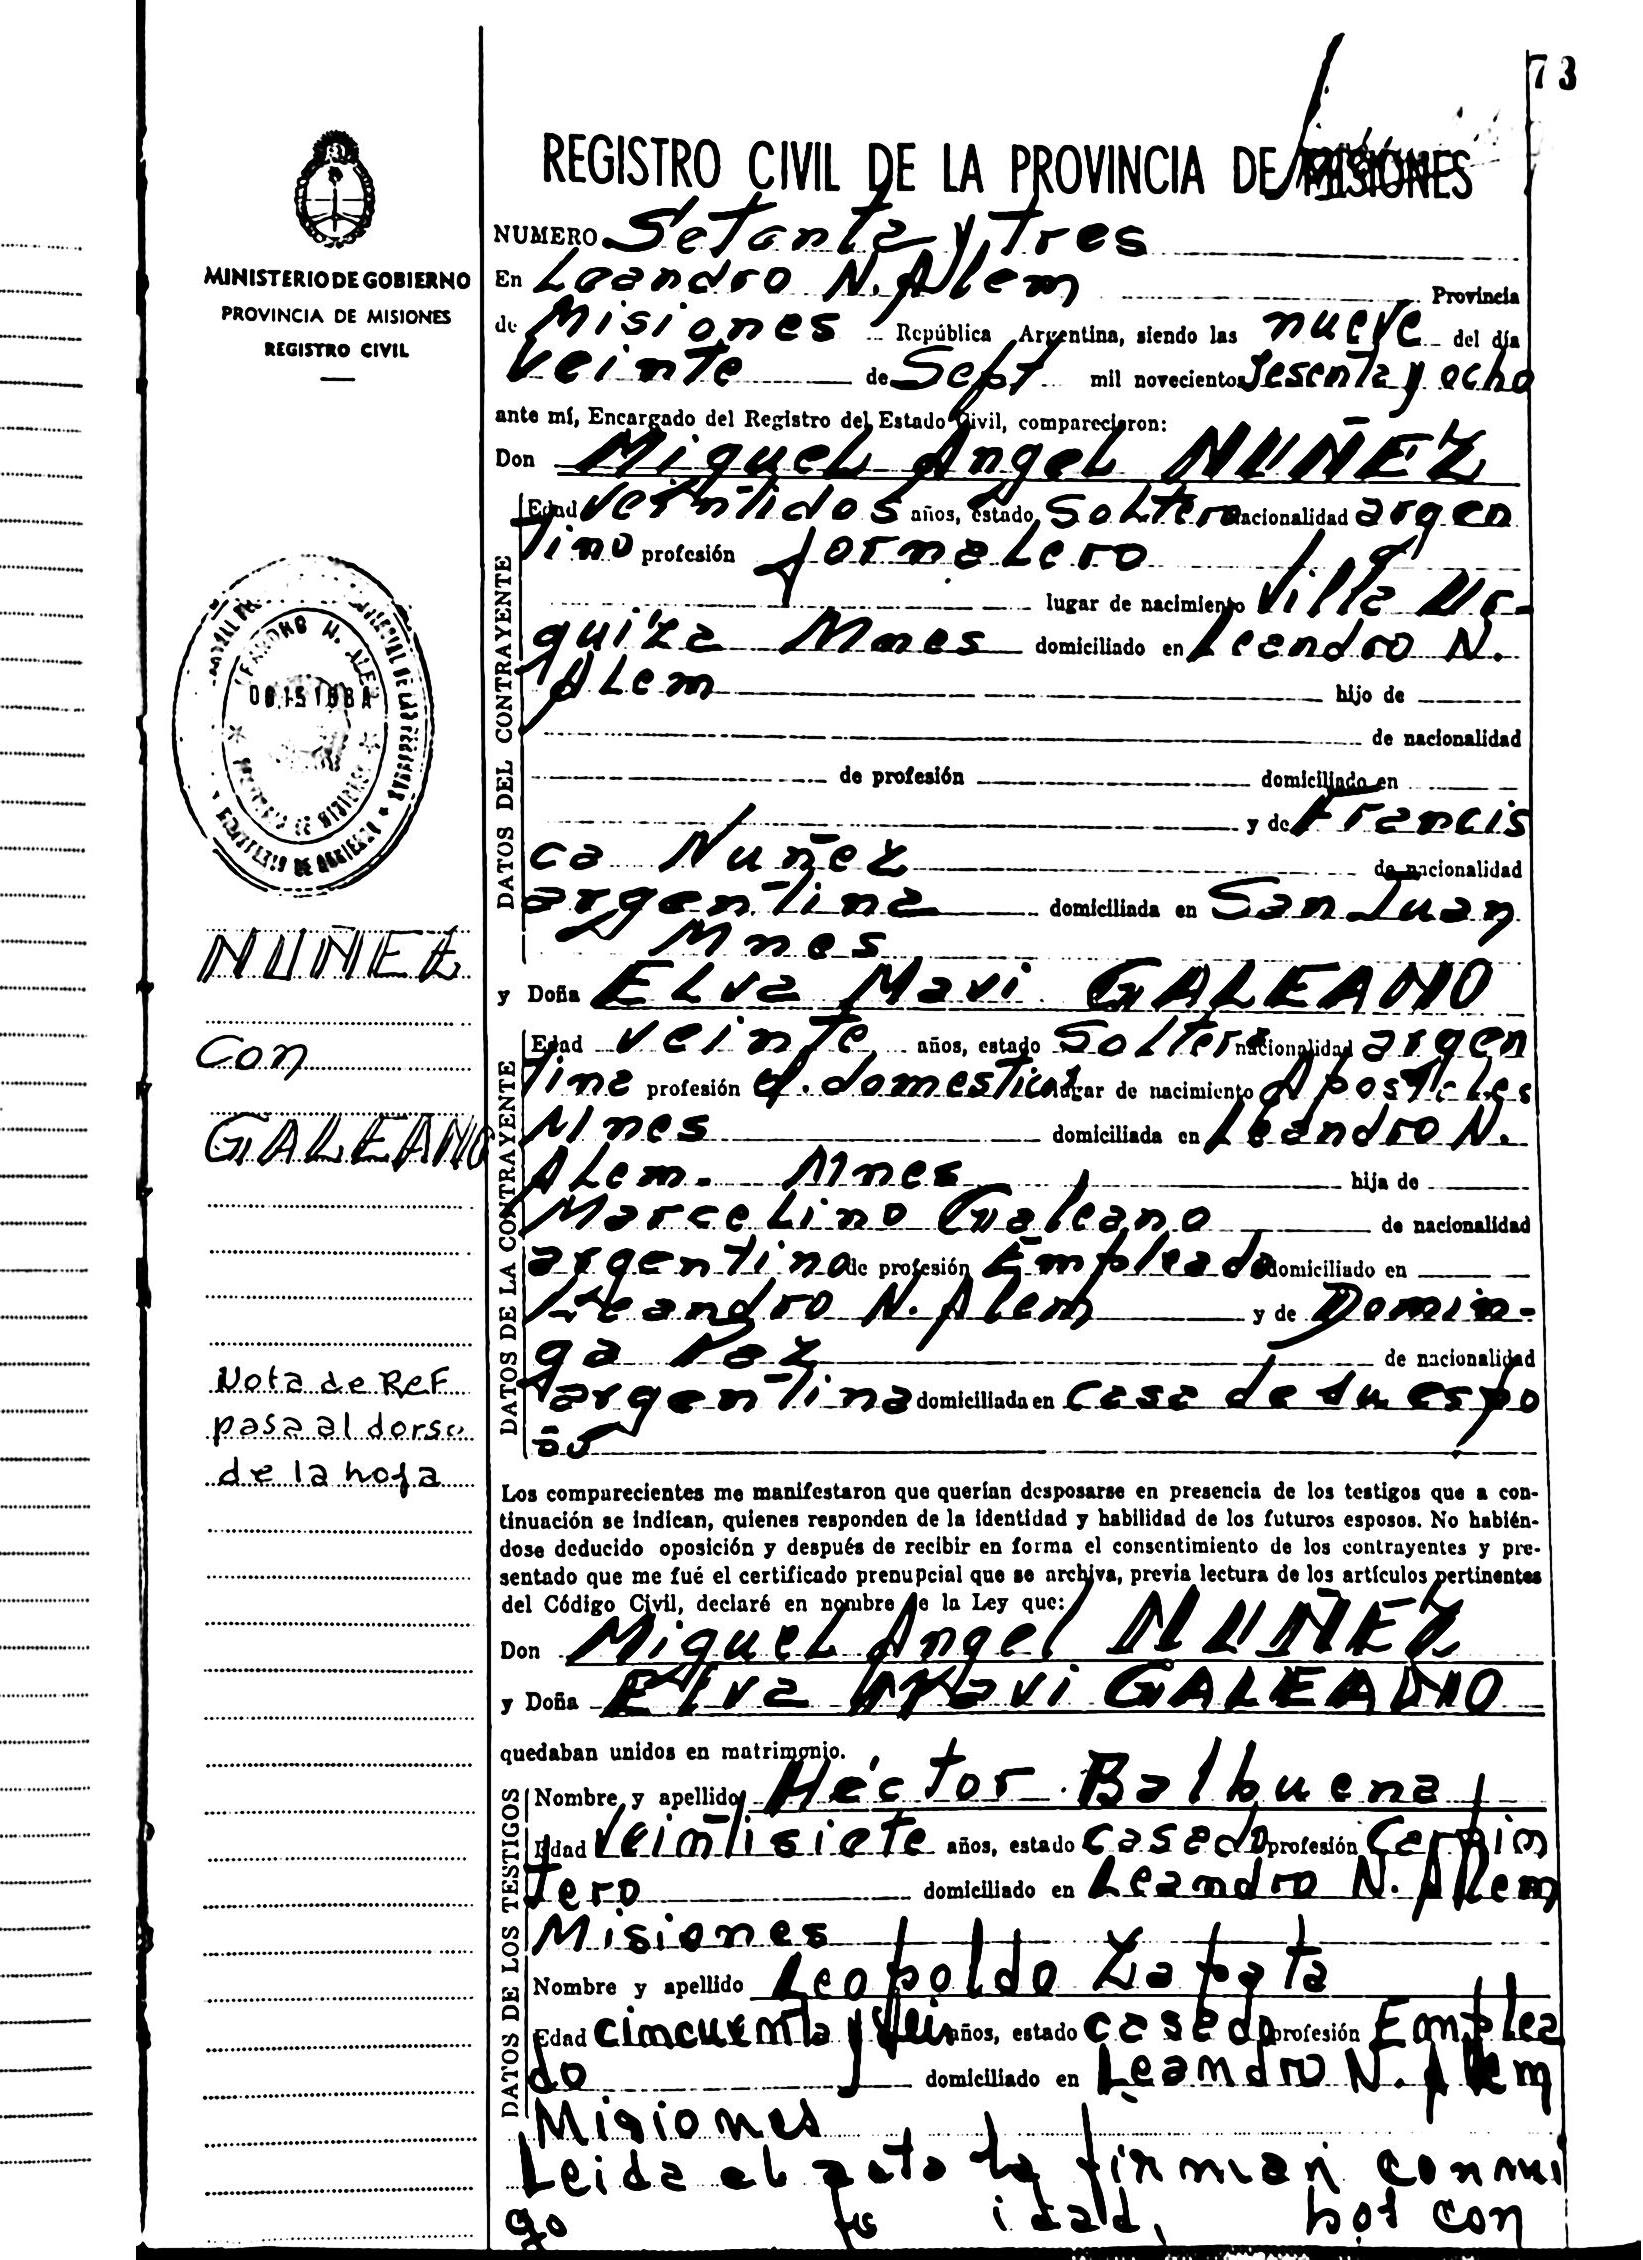 73
REGISTRO CIVIL DE LA PROVINCIA DE MISIONES
MINISTERIO DE GOBIERNO
PROVINCIA DE MISIONES
REGISTRO CIVIL
NUMERO Setenta y Tres
En Leandro N. Alem Provincia
de Misiones República Argentina, siendo las nueve del día
Veinte de Sept mil novecientos sesenta y ocho
ante mí, Encargado del Registro del Estado Civil, comparecieron:
Don Miguel Angel NUÑEZ
DATOS DEL CONTRAYENTE
Edad veintidos años, estado Soltero nacionalidad argen
tino profesión Jornalero
lugar de nacimiento Villa Ur-
quiza Mnes domiciliado en Leandro N.
Alem hijo de
de nacionalidad
de profesión domiciliado en
y de Francis
ca Nuñez de nacionalidad
argentina domiciliada en San Juan
Mnes
y Doña Elva Mavi GALEANO
DATOS DE LA CONTRAYENTE
Edad veinte años, estado Soltera nacionalidad argen
tina profesión q. domesticos lugar de nacimiento Apostoles
Mnes domiciliada en Leandro N.
Alem. Mnes hija de
Marcelino Galeano de nacionalidad
argentino de profesión Empleado domiciliado en
Leandro N. Alem y de Domin-
ga Paz de nacionalidad
argentina domiciliada en casa de su espo
so
Los comparecientes me manifestaron que querían desposarse en presencia de los testigos que a con-
tinuación se indican, quienes responden de la identidad y habilidad de los futuros esposos. No habién-
dose deducido oposición y después de recibir en forma el consentimiento de los contrayentes y pre-
sentado que me fué el certificado prenupcial que se archiva, previa lectura de los artículos pertinentes
del Código Civil, declaré en nombre de la Ley que:
Don Miguel Angel NUÑEZ
y Doña Elva Mavi GALEANO
quedaban unidos en matrimonio.
DATOS DE LOS TESTIGOS
Nombre y apellido Héctor Balbuena
Edad Veintisiete años, estado casado profesión Carpin
tero domiciliado en Leandro N. Alem
Misiones
Nombre y apellido Leopoldo Zapata
Edad cincuenta y seis años, estado casado profesión Emplea
do domiciliado en Leandro N. Alem
Misiones
Leida el acta la firman conmi
go idad, por con
NUÑEZ
Con
GALEANO
Nota de Ref
pasa al dorso
de la hoja